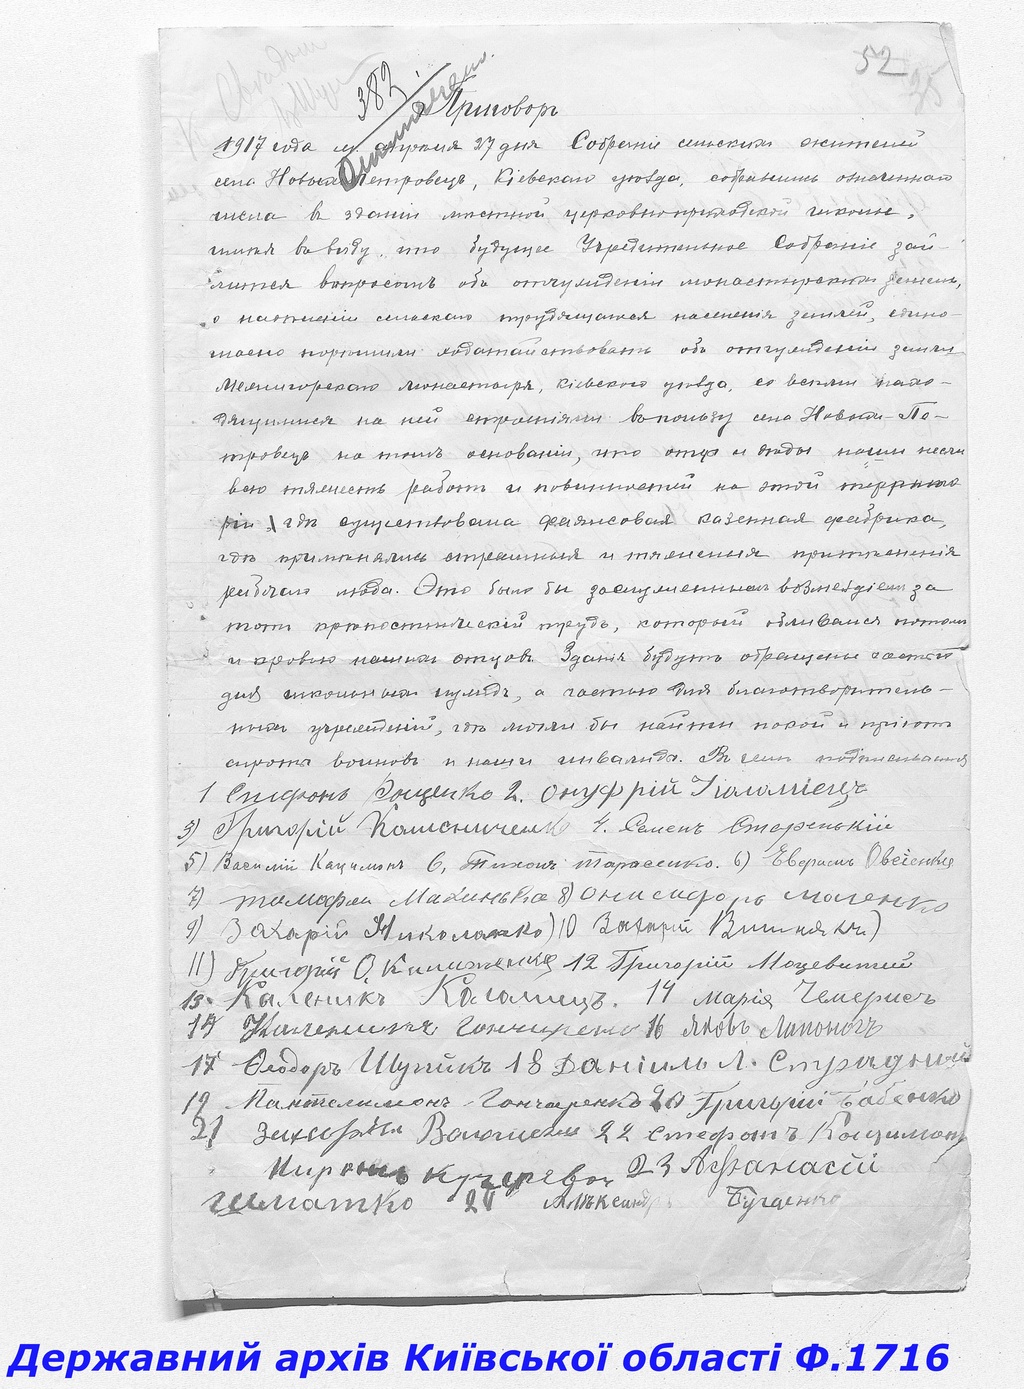 52
382
Приговоръ
1917 года м. апреля 27 дня Собраніе сельскихъ жителей
села Новыхъ Петровецъ, Кіевскаго уѣзда, собравшись означеннаго
числа в зданіи мѣстной церковноприходской школы,
имѣя ввиду, что будущее Учредительное Собраніе зай-
мется вопросомъ объ отчужденіи монастырскихъ земель,
о надѣленіи сельскаго трудящагося населенія землей, едино-
гласно порѣшили ходатайствовать объ отчужденіи земли
Межигорскаго монастыря, Кіевского уѣзда, со всѣми нахо-
дящимися на ней строеніями въ пользу села Новыхъ-Пе-
тровецъ на томъ основаніи, что отцы и дѣды наши несли
всю тяжесть работъ и повинностей на этой террито
ріи, гдѣ существовала фаянсовая казенная фабрика,
гдѣ примѣнялись страшныя и тяжелыя притѣсненія
рабочаго люда. Это было бы заслуженнымъ возмездіемъ за
тотъ крѣпостническій трудъ, который обливался потомъ
и кровью нашихъ отцовъ. Зданія будутъ обращены частью
для школьныхъ нуждъ, а частью для благотворитель-
ныхъ учрежденій, гдѣ могли бы найти покой и пріютъ
сироты воиновъ и наши инвалиды. Въ семъ подписываемся
1 Стефанъ Гощенко 2. Онуфрій Коломіецъ
3) Григорій Колесниченко 4. Семенъ Старенькій
5) Василій Кацимонъ 6, Тихонъ Тарасенко. 6) Еврамъ Овсіенко
7) Махинько 8) Онисифоръ моленко
9) Захарій Николаенко) 10 Захарій Вишнякъ)
11) Григорій О. 12 Григорій Моцевитий
13. Каленикъ Коломіецъ. 14 марія Чемерисъ
14 Каленикъ Гончаренко 16 Яковъ
17 Ѳеодоръ Шупикъ 18 Даніилъ Л. Страдний
19 Пантелимонъ Гончаренко 20 Григорій Бабенко
21 Захарій 22 стефанъ Кацимонъ
Миронъ 23 Афанасій
шматко 24 Александръ Буценко
Державний архів Київської області Ф.1716